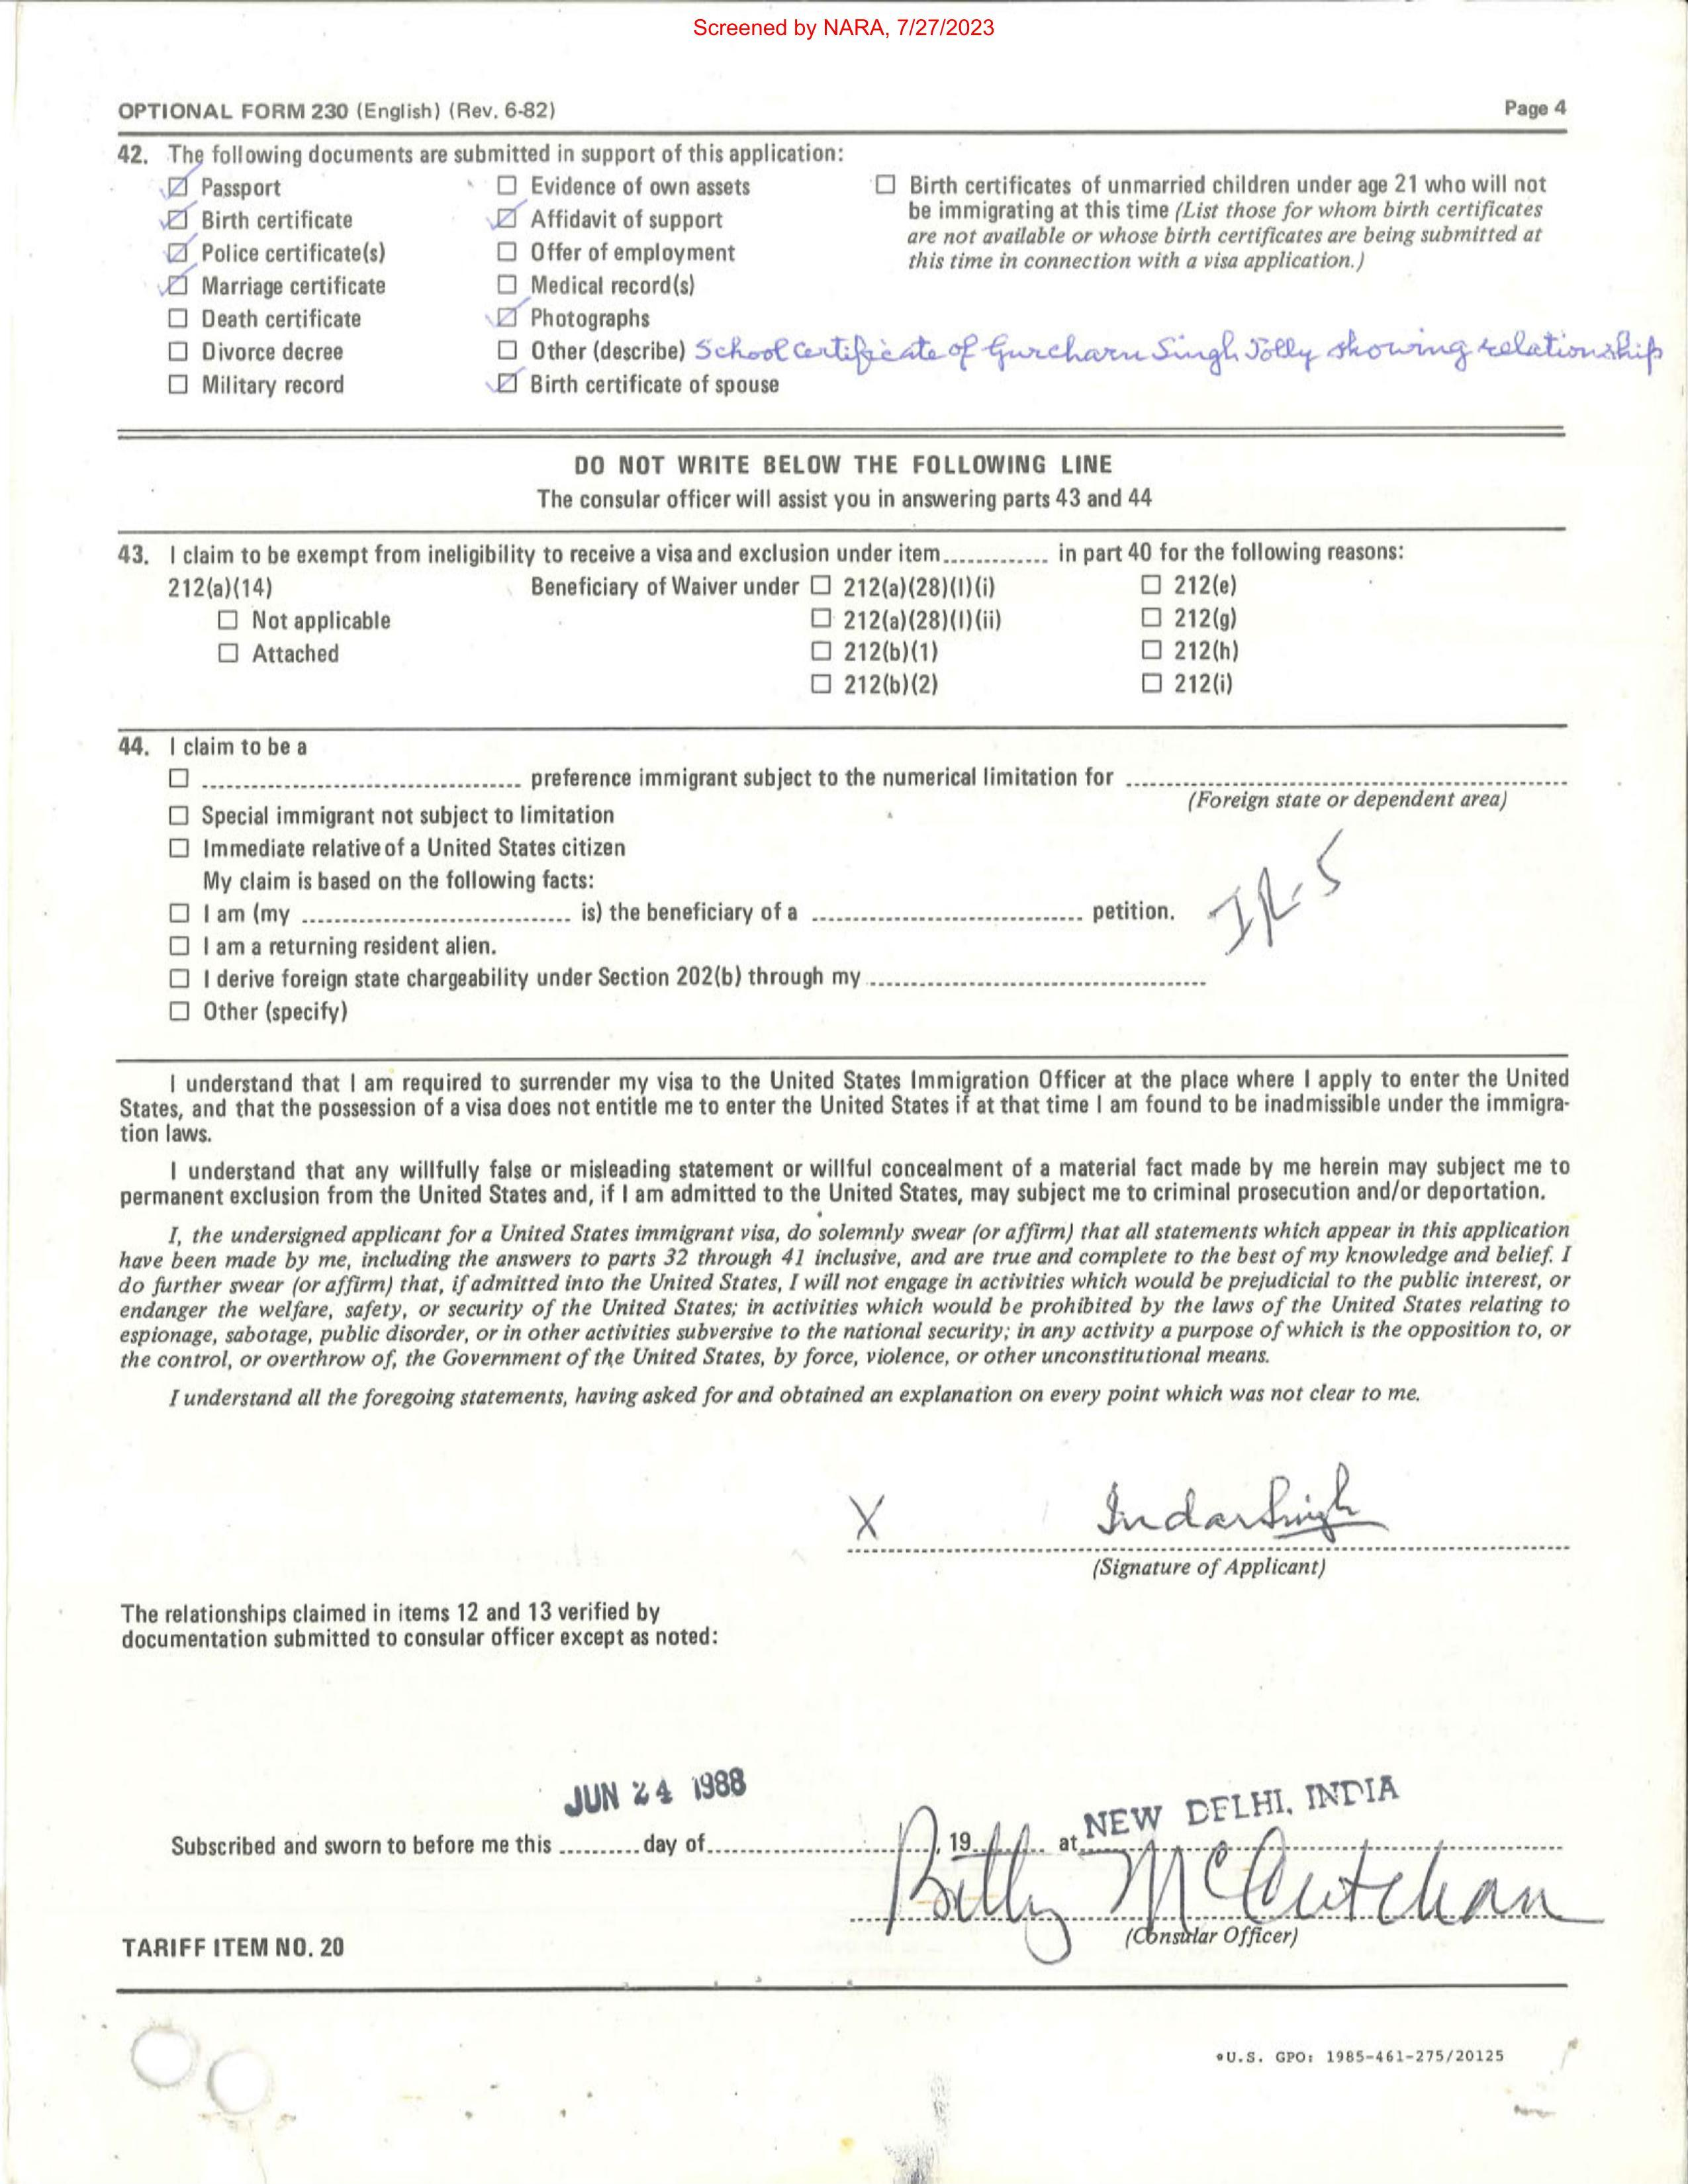 Screened by NARA, 7/27/2023
OPTIONAL FORM 230 (English) (Rev. 6-82) Page 4
42. The following documents are submitted in support of this application:
☑ Passport
☑ Birth certificate
☑ Police certificate(s)
☑ Marriage certificate
☐ Death certificate
☐ Divorce decree
☐ Military record
☐ Evidence of own assets
☑ Affidavit of support
☐ Offer of employment
☐ Medical record(s)
☑ Photographs
☐ Other (describe) School certificate of Gurcharn Singh Jolly showing relationship
☑ Birth certificate of spouse
☐ Birth certificates of unmarried children under age 21 who will not
be immigrating at this time (List those for whom birth certificates
are not available or whose birth certificates are being submitted at
this time in connection with a visa application.)
DO NOT WRITE BELOW THE FOLLOWING LINE
The consular officer will assist you in answering parts 43 and 44
43. I claim to be exempt from ineligibility to receive a visa and exclusion under item............. in part 40 for the following reasons:
212(a)(14)
☐ Not applicable
☐ Attached
Beneficiary of Waiver under ☐ 212(a)(28)(I)(i)
☐ 212(a)(28)(I)(ii)
☐ 212(b)(1)
☐ 212(b)(2)
☐ 212(e)
☐ 212(g)
☐ 212(h)
☐ 212(i)
44. I claim to be a
☐ ................................ preference immigrant subject to the numerical limitation for ................................
(Foreign state or dependent area)
☐ Special immigrant not subject to limitation
☐ Immediate relative of a United States citizen
My claim is based on the following facts:
☐ I am (my ............................ is) the beneficiary of a ............................ petition.
IR-5
☐ I am a returning resident alien.
☐ I derive foreign state chargeability under Section 202(b) through my ................................
☐ Other (specify)
I understand that I am required to surrender my visa to the United States Immigration Officer at the place where I apply to enter the United
States, and that the possession of a visa does not entitle me to enter the United States if at that time I am found to be inadmissible under the immigra-
tion laws.
I understand that any willfully false or misleading statement or willful concealment of a material fact made by me herein may subject me to
permanent exclusion from the United States and, if I am admitted to the United States, may subject me to criminal prosecution and/or deportation.
I, the undersigned applicant for a United States immigrant visa, do solemnly swear (or affirm) that all statements which appear in this application
have been made by me, including the answers to parts 32 through 41 inclusive, and are true and complete to the best of my knowledge and belief. I
do further swear (or affirm) that, if admitted into the United States, I will not engage in activities which would be prejudicial to the public interest, or
endanger the welfare, safety, or security of the United States; in activities which would be prohibited by the laws of the United States relating to
espionage, sabotage, public disorder, or in other activities subversive to the national security; in any activity a purpose of which is the opposition to, or
the control, or overthrow of, the Government of the United States, by force, violence, or other unconstitutional means.
I understand all the foregoing statements, having asked for and obtained an explanation on every point which was not clear to me.
X Indar Singh
(Signature of Applicant)
The relationships claimed in items 12 and 13 verified by
documentation submitted to consular officer except as noted:
JUN 24 1988
NEW DELHI, INDIA
Subscribed and sworn to before me this .......... day of........................, 19........ at ................................
Betty McCutchan
(Consular Officer)
TARIFF ITEM NO. 20
*U.S. GPO: 1985-461-275/20125